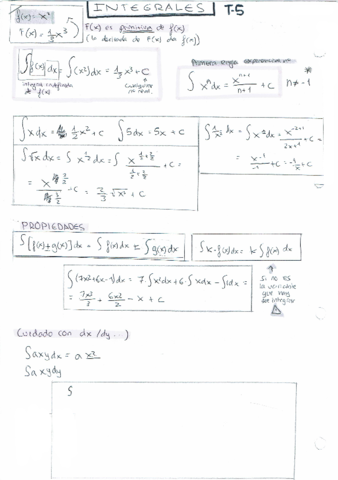 INTEGRALES T-5
f(x) = x²
F(x) = 1/3 x³
F(x) es primitiva de f(x)
(la derivada de F(x) da f(x))
∫f(x)dx = ∫(x²)dx = 1/3 x³ + C
integral indefinida de f(x)
cualquier nº real
∫xⁿdx = xⁿ⁺¹/n+1 + C n ≠ -1
∫xdx = 1/2 x² + C ∫5dx = 5x + C
∫1/x² dx = ∫x⁻²dx = x⁻²⁺¹/-2+1 + C =
= x⁻¹/-1 + C = -1/x + C
∫√x dx = ∫x^1/2 dx =
= 2/3 √x³ + C
PROPIEDADES
∫[f(x)±g(x)]dx = ∫f(x)dx ± ∫g(x)dx
∫K·f(x)dx = K∫f(x)dx
∫(7x²+6x-1)dx = 7·∫x²dx + 6·∫xdx - ∫1dx =
= 7x³/3 + 6x²/2 - x + C
Si no es la variable que hay
(cuidado con dx/dy...)
∫axydx = a x²
∫axydy
∫